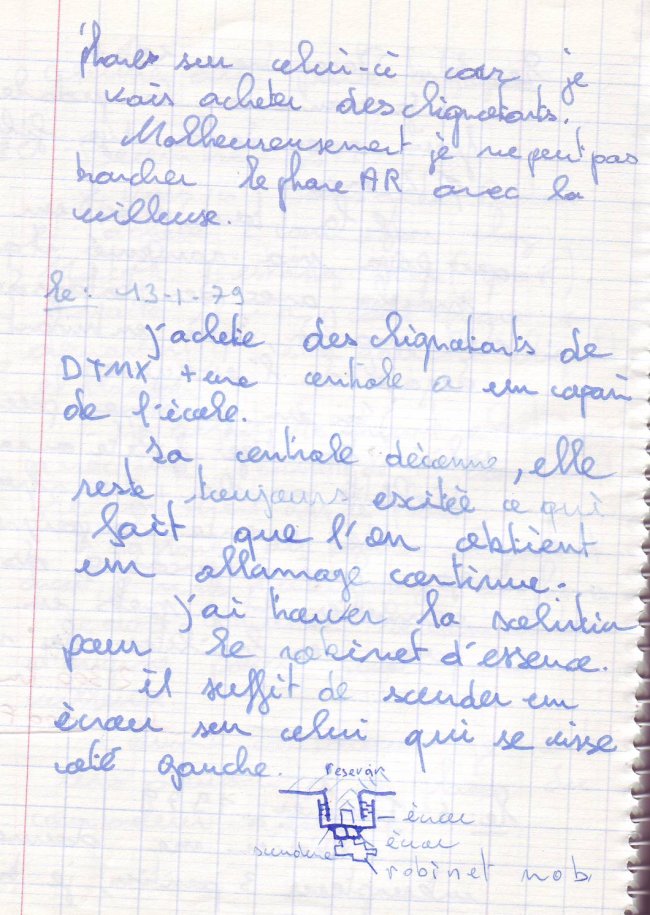 phares sur celui-ci car je
vais acheter des clignotants.
Malheureusement je ne peut pas
brancher le phare AR avec la
veilleuse.
Le : 13-1-79
J'achete des clignotants de
DTMX + une centrale a un copain
de l'école.
La centrale déconne, elle
reste toujours excitée ce qui
fait que l'on obtient
un allumage continue.
J'ai trouver la solution
pour le robinet d'essence.
il suffit de souder un
écrou sur celui qui se visse
coté gauche.
reservoir
écrou
écrou
soudure
robinet mob